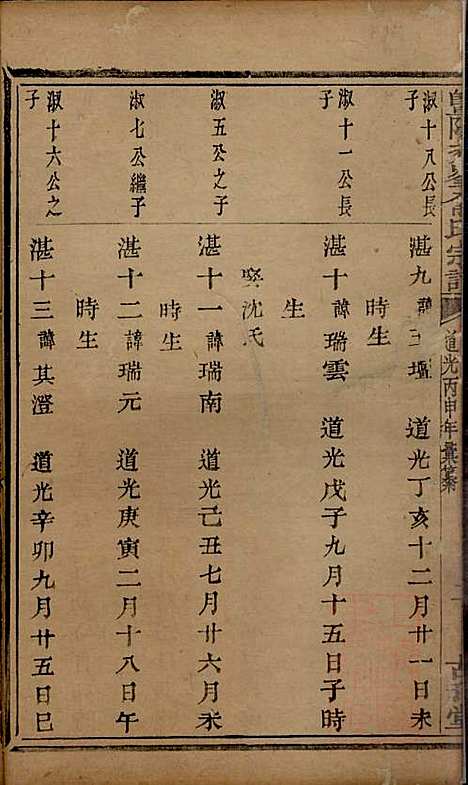 淑十八公長子
湛九諱 道光丁亥十二月廿一日未
時生
淑十一公長子
湛十諱瑞雲 道光戊子九月十五日子時
生
娶沈氏
淑五公之子
湛十一諱瑞南 道光己丑七月廿六月未
時生
淑七公繼子
湛十二諱瑞元 道光庚寅二月十八日午
時生
淑十六公之子
湛十三諱其澄 道光辛卯九月廿五日巳
氏宗譜
道光丙申年彙纂
堂